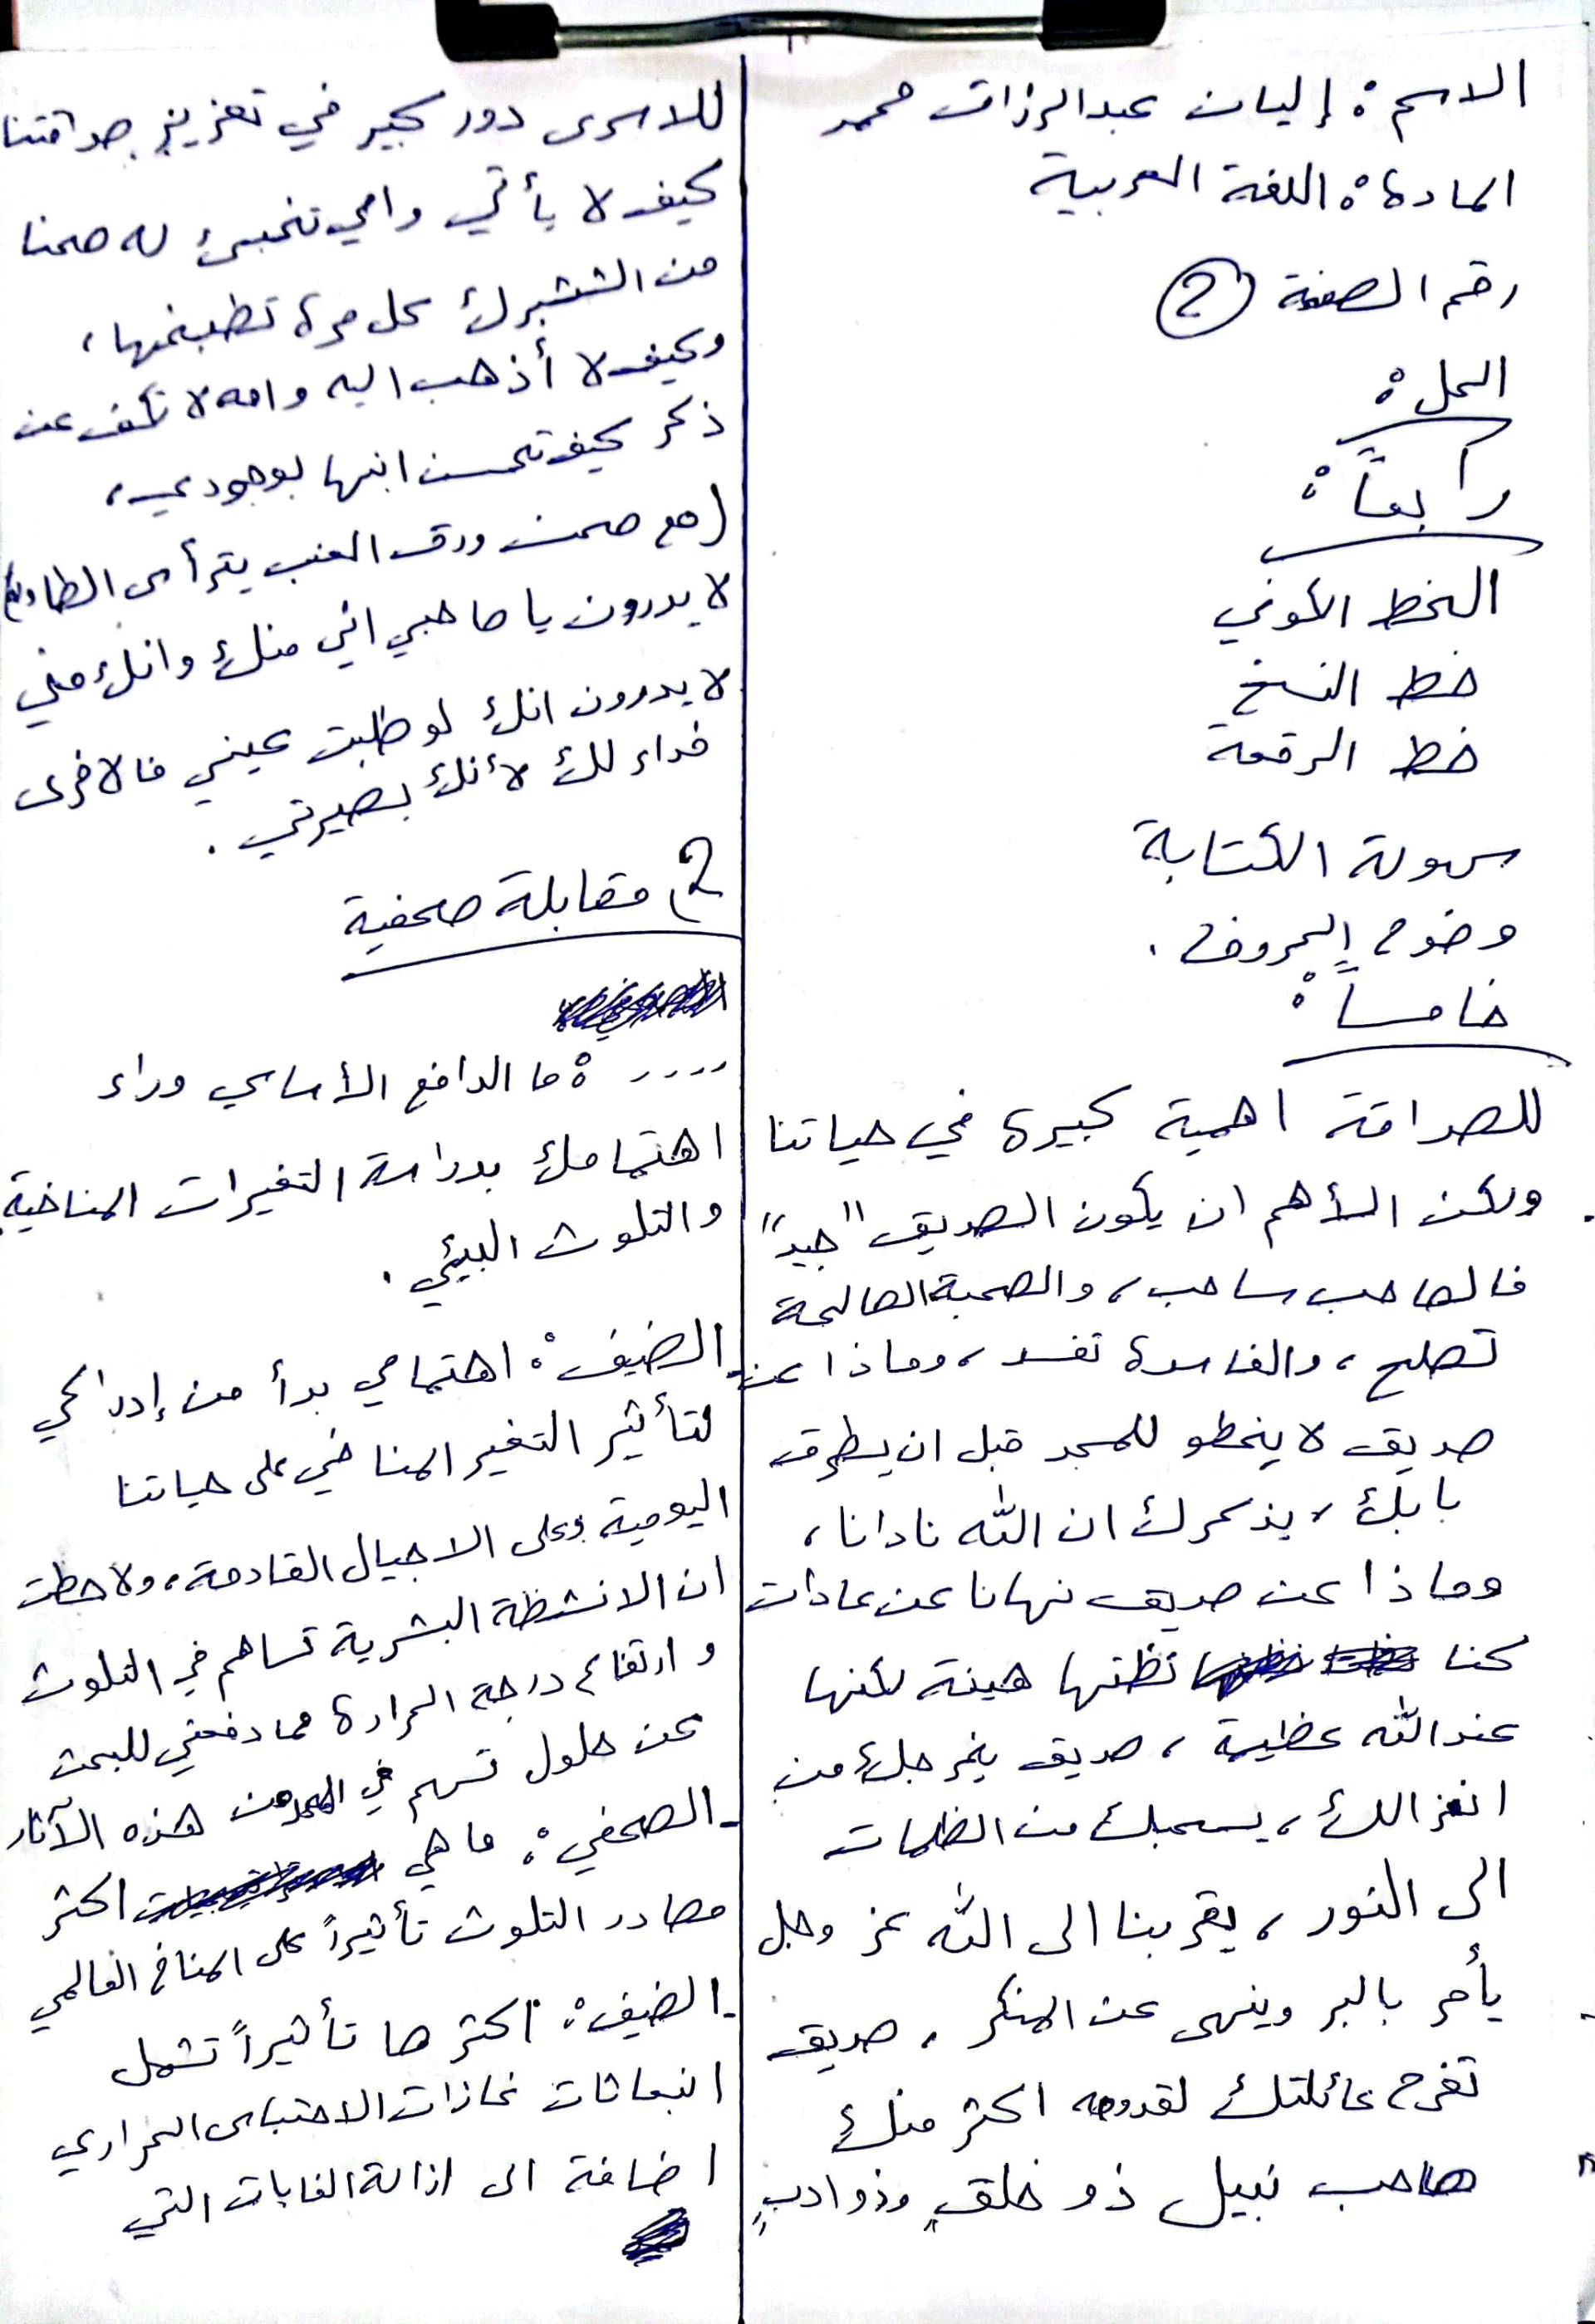 الاسم : إليان عبدالرزاق محمد
المادة : اللغة العربية
رقم الصفحة (2)
الحل :
رابعاً :
الخط الكوفي
خط النسخ
خط الرقعة
سهولة الكتابة
وضوح الحروف .
خامساً :
للصداقة اهمية كبيرة في حياتنا
ولكن الأهم ان يكون الصديق "جيد"
فالصاحب ساحب، والصحبة الصالحة
تصلح، والفاسدة تفسد، وماذا عن
صديق لا يخطو للمسجد قبل ان يطرق
بابك، يذكرك ان الله نادانا،
وماذا عن صديق نهانا عن عادات
كنا نظنها هينة لكنها
عند الله عظيمة، صديق يخرجك من
انعزالك، يسحبك من الظلمات
الى النور، يقربنا الى الله عز وجل
يأمر بالبر وينهى عن المنكر، صديق
تفرح عائلتك لقدومه اكثر منك
صاحب نبيل ذو خلقٍ وذو ادبٍ
للاسرى دور كبير في تعزيز صداقتنا
كيف لا يأتي وامي تخبئ له صحنا
من الششبرك كل مرة تطبخها،
وكيف لا أذهب اليه وامه لا تكف عن
ذكر كيف تحسن ابنها بوجودي،
(مع صحن ورق العنب يترأس الطاولة)
لا يدرون يا صاحبي اني منك وانك مني
لا يدرون انك لو طلبت عيني فالاخرى
فداء لك لأنك بصيرتي .
2) مقابلة صحفية
.... : ما الدافع الأساسي وراء
اهتمامك بدراسة التغيرات المناخية
والتلوث البيئي .
- الضيف : اهتمامي بدأ من إدراكي
لتأثير التغير المناخي على حياتنا
اليومية وعلى الاجيال القادمة، ولاحظت
ان الانشطة البشرية تساهم في التلوث
وارتفاع درجة الحرارة مما دفعني للبحث
عن حلول تسهم في الحد من هذه الآثار
- الصحفي : ما هي اكثر
مصادر التلوث تأثيراً على المناخ العالمي
- الضيف : أكثرها تأثيراً تشمل
انبعاثات غازات الاحتباس الحراري
اضافة الى ازالة الغابات التي